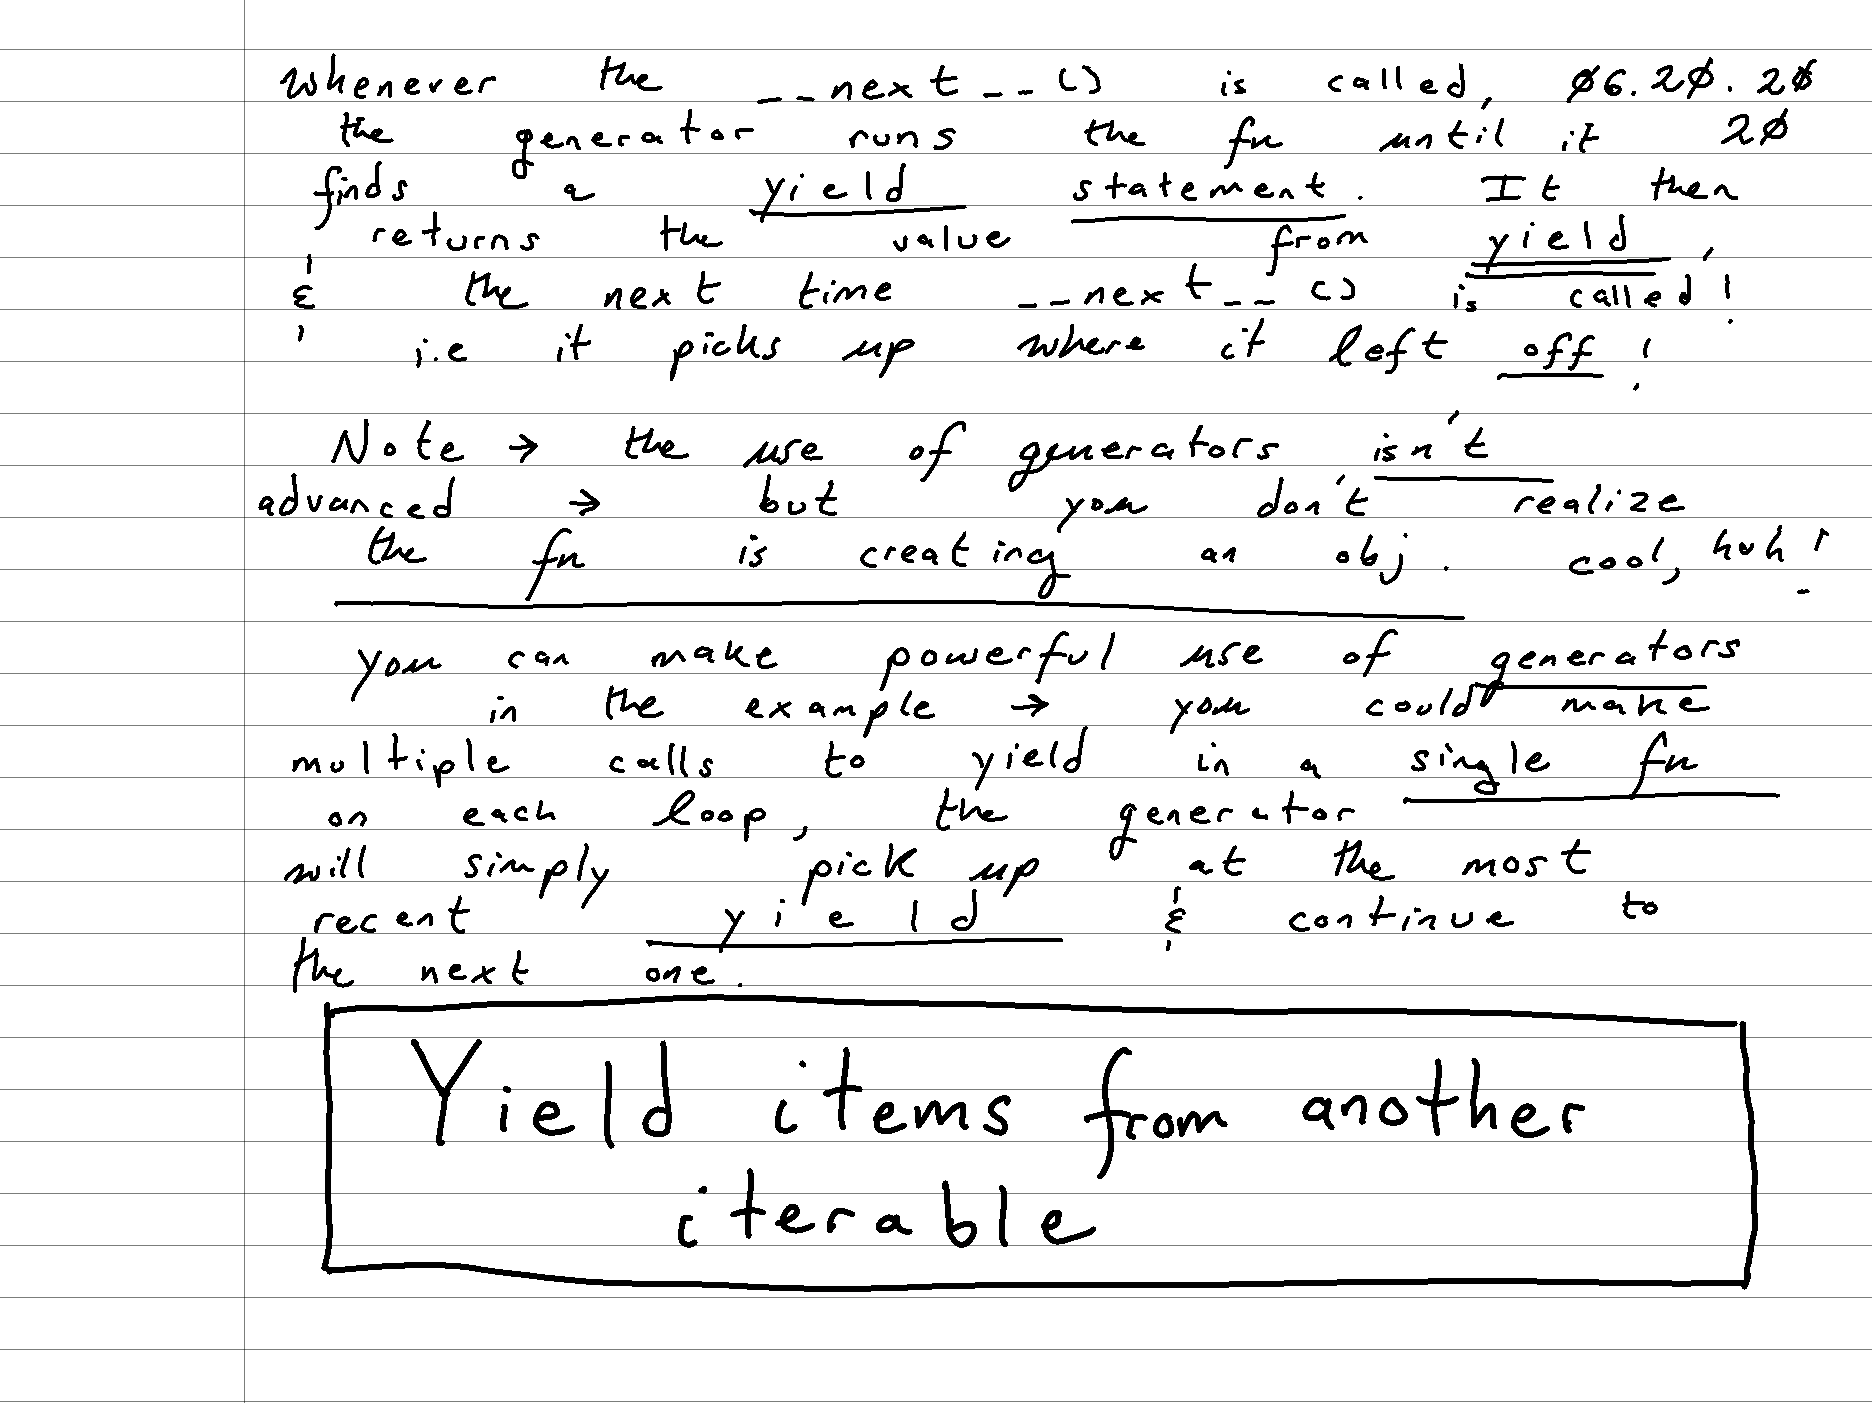 whenever the __next__() is called, 06.20.20
the generator runs the fn until it 20
finds a yield statement. It then
returns the value from yield,
& the next time __next__() is called!
i.e it picks up where it left off!
Note → the use of generators isn't
advanced → but you don't realize
the fn is creating an obj. cool, huh!
you can make powerful use of generators
in the example → you could make
multiple calls to yield in a single fn
on each loop, the generator
will simply pick up at the most
recent yield & continue to
the next one.
Yield items from another
iterable